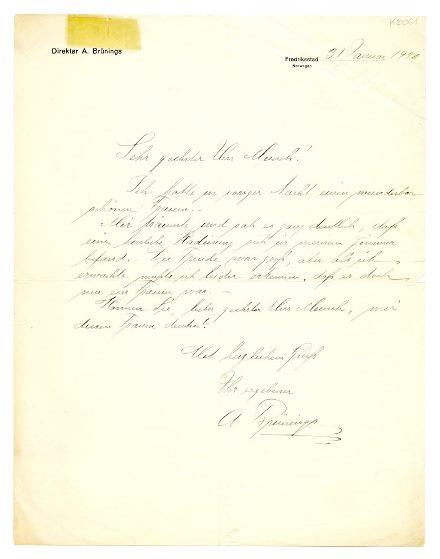 K2061
Direktør A. Brünings
Fredrikstad 31 Januar 1920
Norwegen
Sehr geehrter Herr Munch!
Ich hatte in voriger Nacht einen wunderbar
schönen Traum.
Mir träumte und sah es ganz deutlich, daß
eine herrliche sich in meinem Zimmer
befand. Die Freude war groß, aber als ich
erwachte mußte ich leider erkennen, daß es doch
nur ein Traum war —
Können Sie, sehr geehrter Herr Munch, mir
diesen Traum deuten?
Mit Gruß
Ihr ergebener
A Brünings